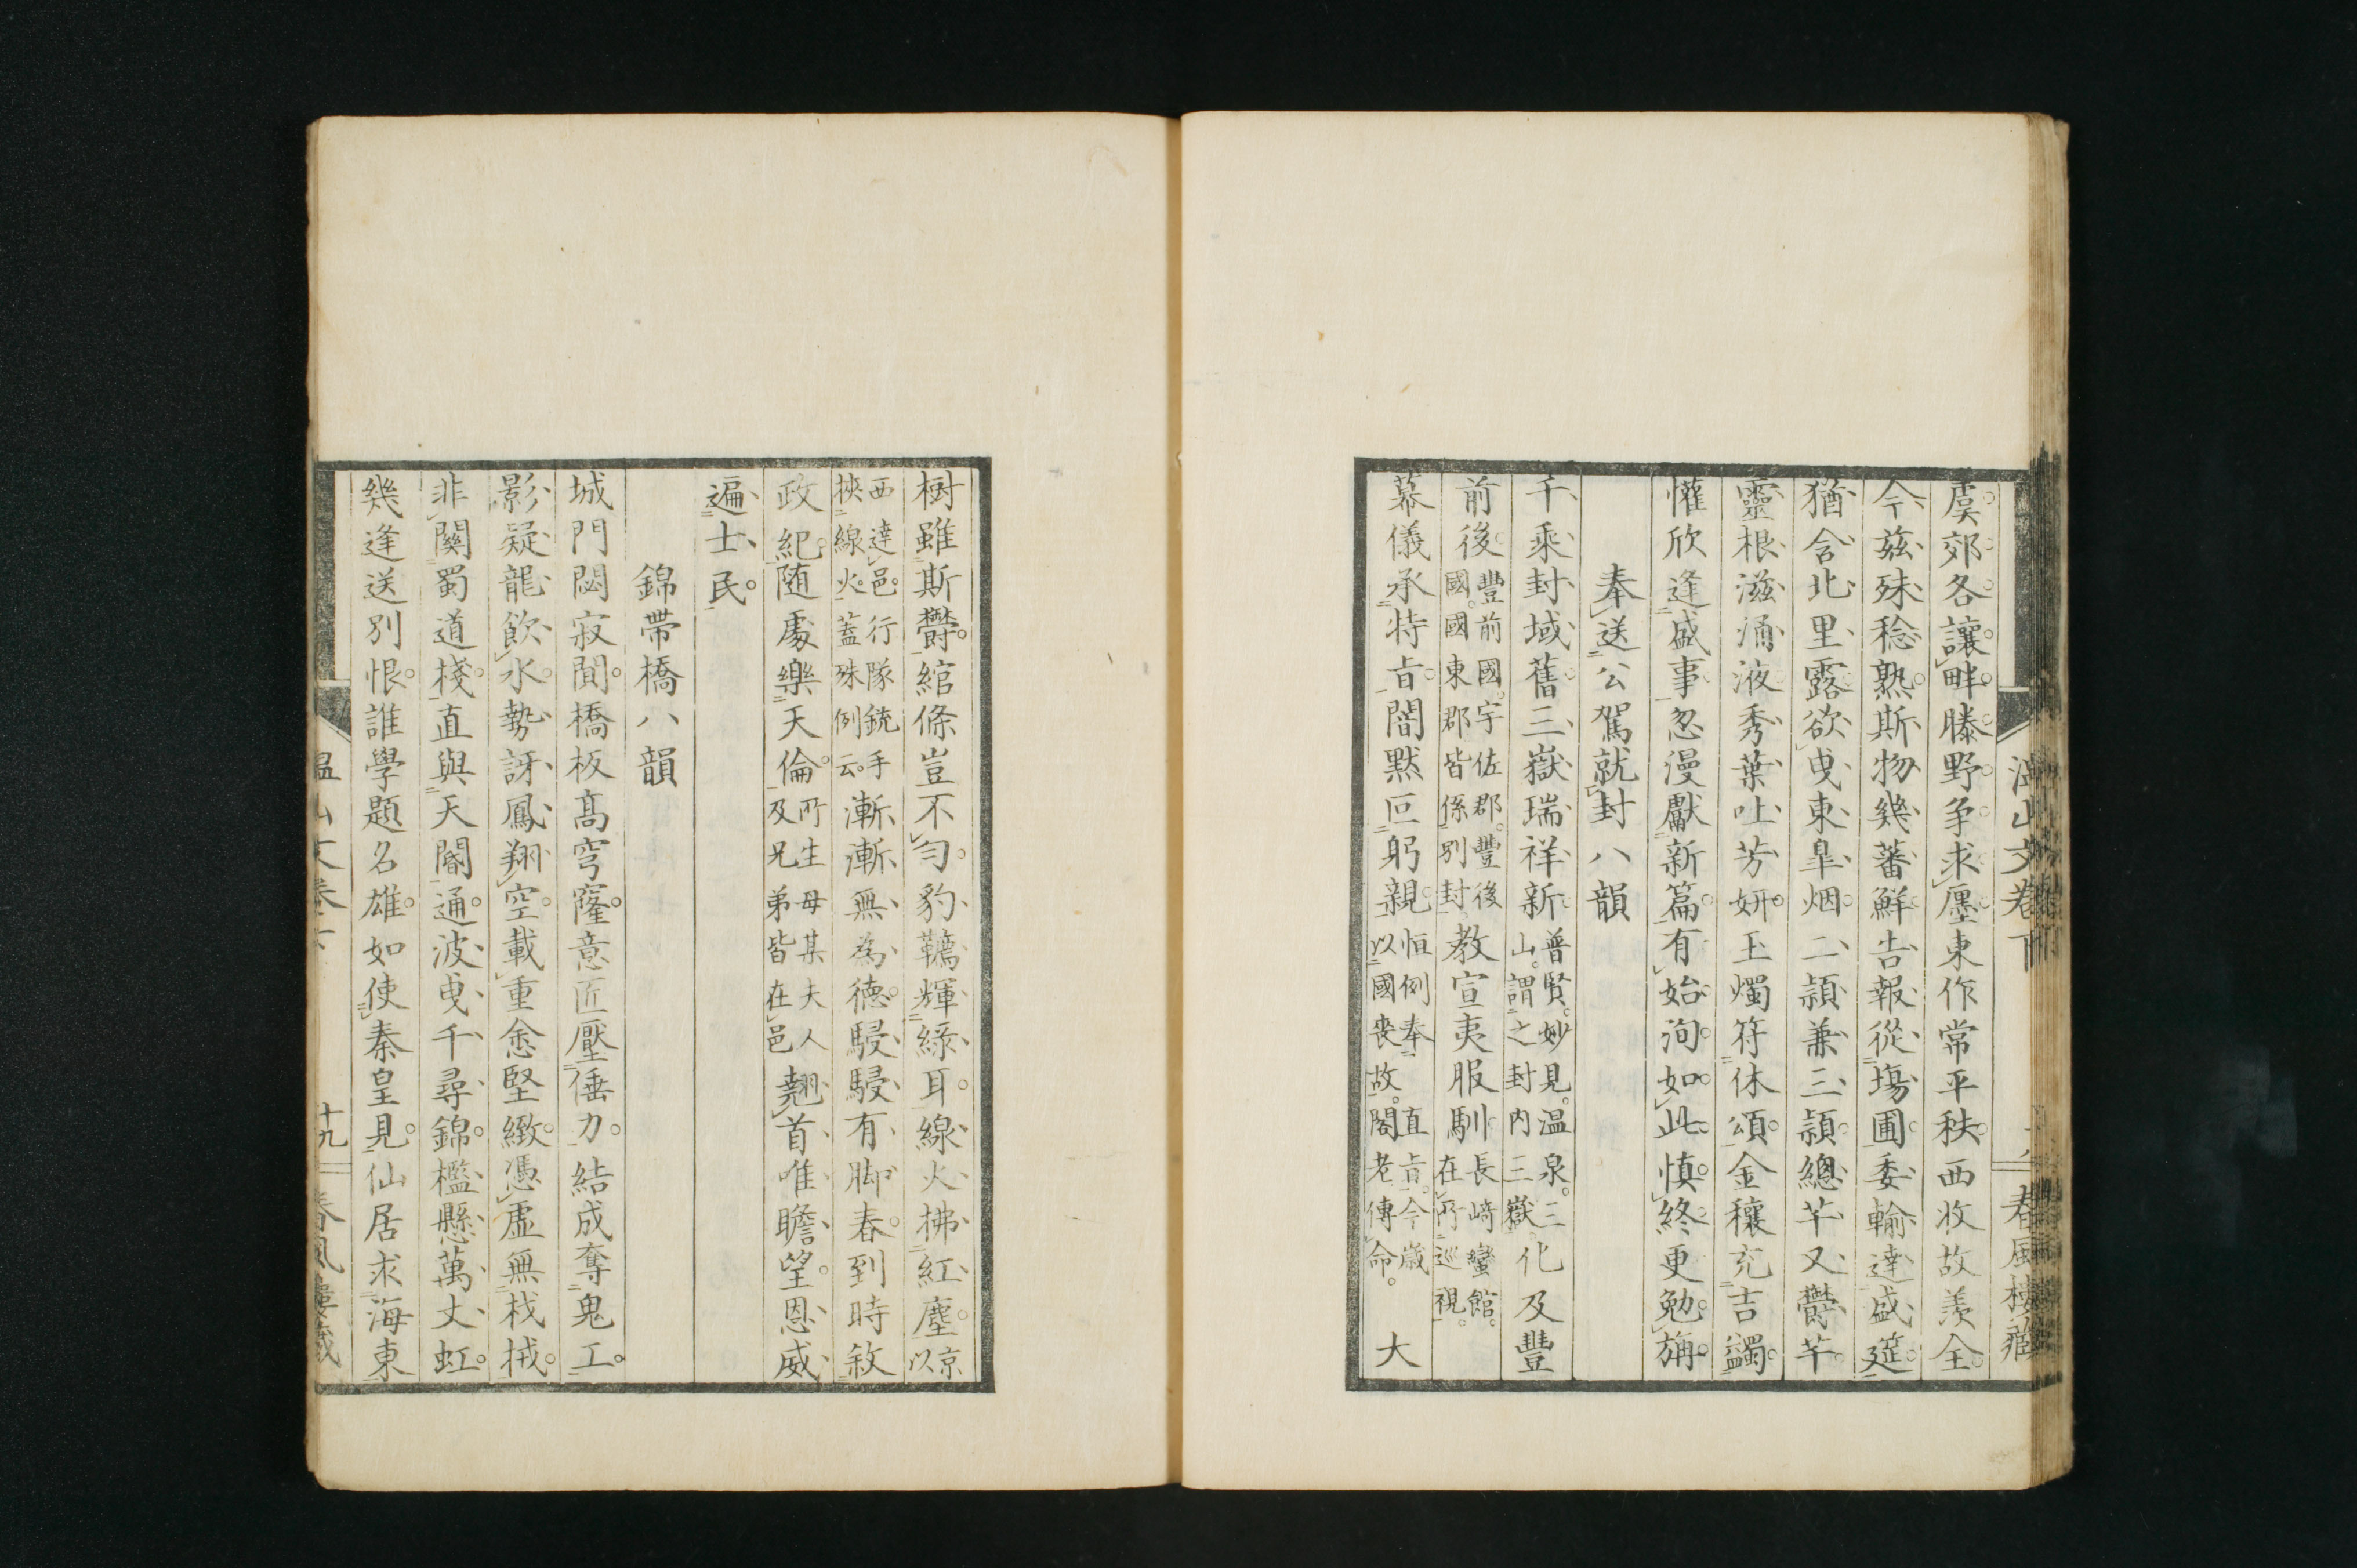 虞郊各讓畔。滕野争求廛。東作常平秩。西收故羨全。
今茲殊稔熟。斯物幾蕃鮮。告報從塲圃。委輸達盛筵。
猶含北里露。欲曳東皐烟。二頴兼三頴。總芊又鬱芊。
靈根滋湧液。秀葉吐芳妍。玉燭符休頌。金穰充吉蠲。
懽欣逢盛事。忽漫獻新篇。有始洵如此。慎終更勉旃。
奉送公駕就封八韻
千乘封域舊。三嶽瑞祥新。普賢。妙見。温泉。三山。謂之封内三嶽。化及豐
前後。豐前國。宇佐郡。豐後國。國東郡皆係別封。教宣夷服馴。長﨑蠻館。在所巡視。
幕儀承特旨。閤黙叵躬親。恒例奉直旨。今歳以國喪故。閤老傳命。大
温山文卷下
春風樓藏
樹雖斯鬱。綰條豈不匀。豹韉輝緑耳。線火拂紅塵。以京
西達邑。行隊銃手挾線火。蓋殊例云。漸漸無為德。駸駸有脚春。到時敘
政紀。随處樂天倫。所生母某夫人及兄弟皆在邑。翹首唯瞻望。恩威
遍士民。
錦帶橋八韻
城門閟寂間。橋板高穹窿。意匠壓倕力。結成奪鬼工。
影疑龍飲水。勢訝鳳翔空。載重悆堅緻。憑虛無栈拭。
非關蜀道棧。直與天閽通。波曳千尋錦。檻懸萬丈虹。
幾逢送別恨。誰學題名雄。如使秦皇見。仙居求海東
温山文卷下
十九
春風樓藏